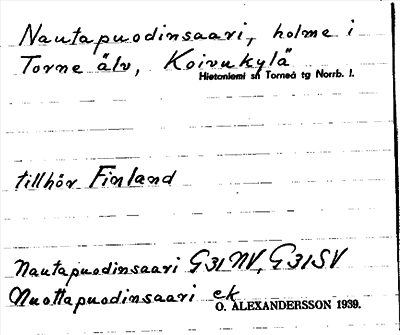 Nautapuodinsaari, holme i
Torne älv, Koivukylä
Hietaniemi sn Torneå tg Norrb. l.
tillhör Finland
Nautapuodinsaari G31NV, G31SV
Nuottapuodinsaari ek
O. ALEXANDERSSON 1939.